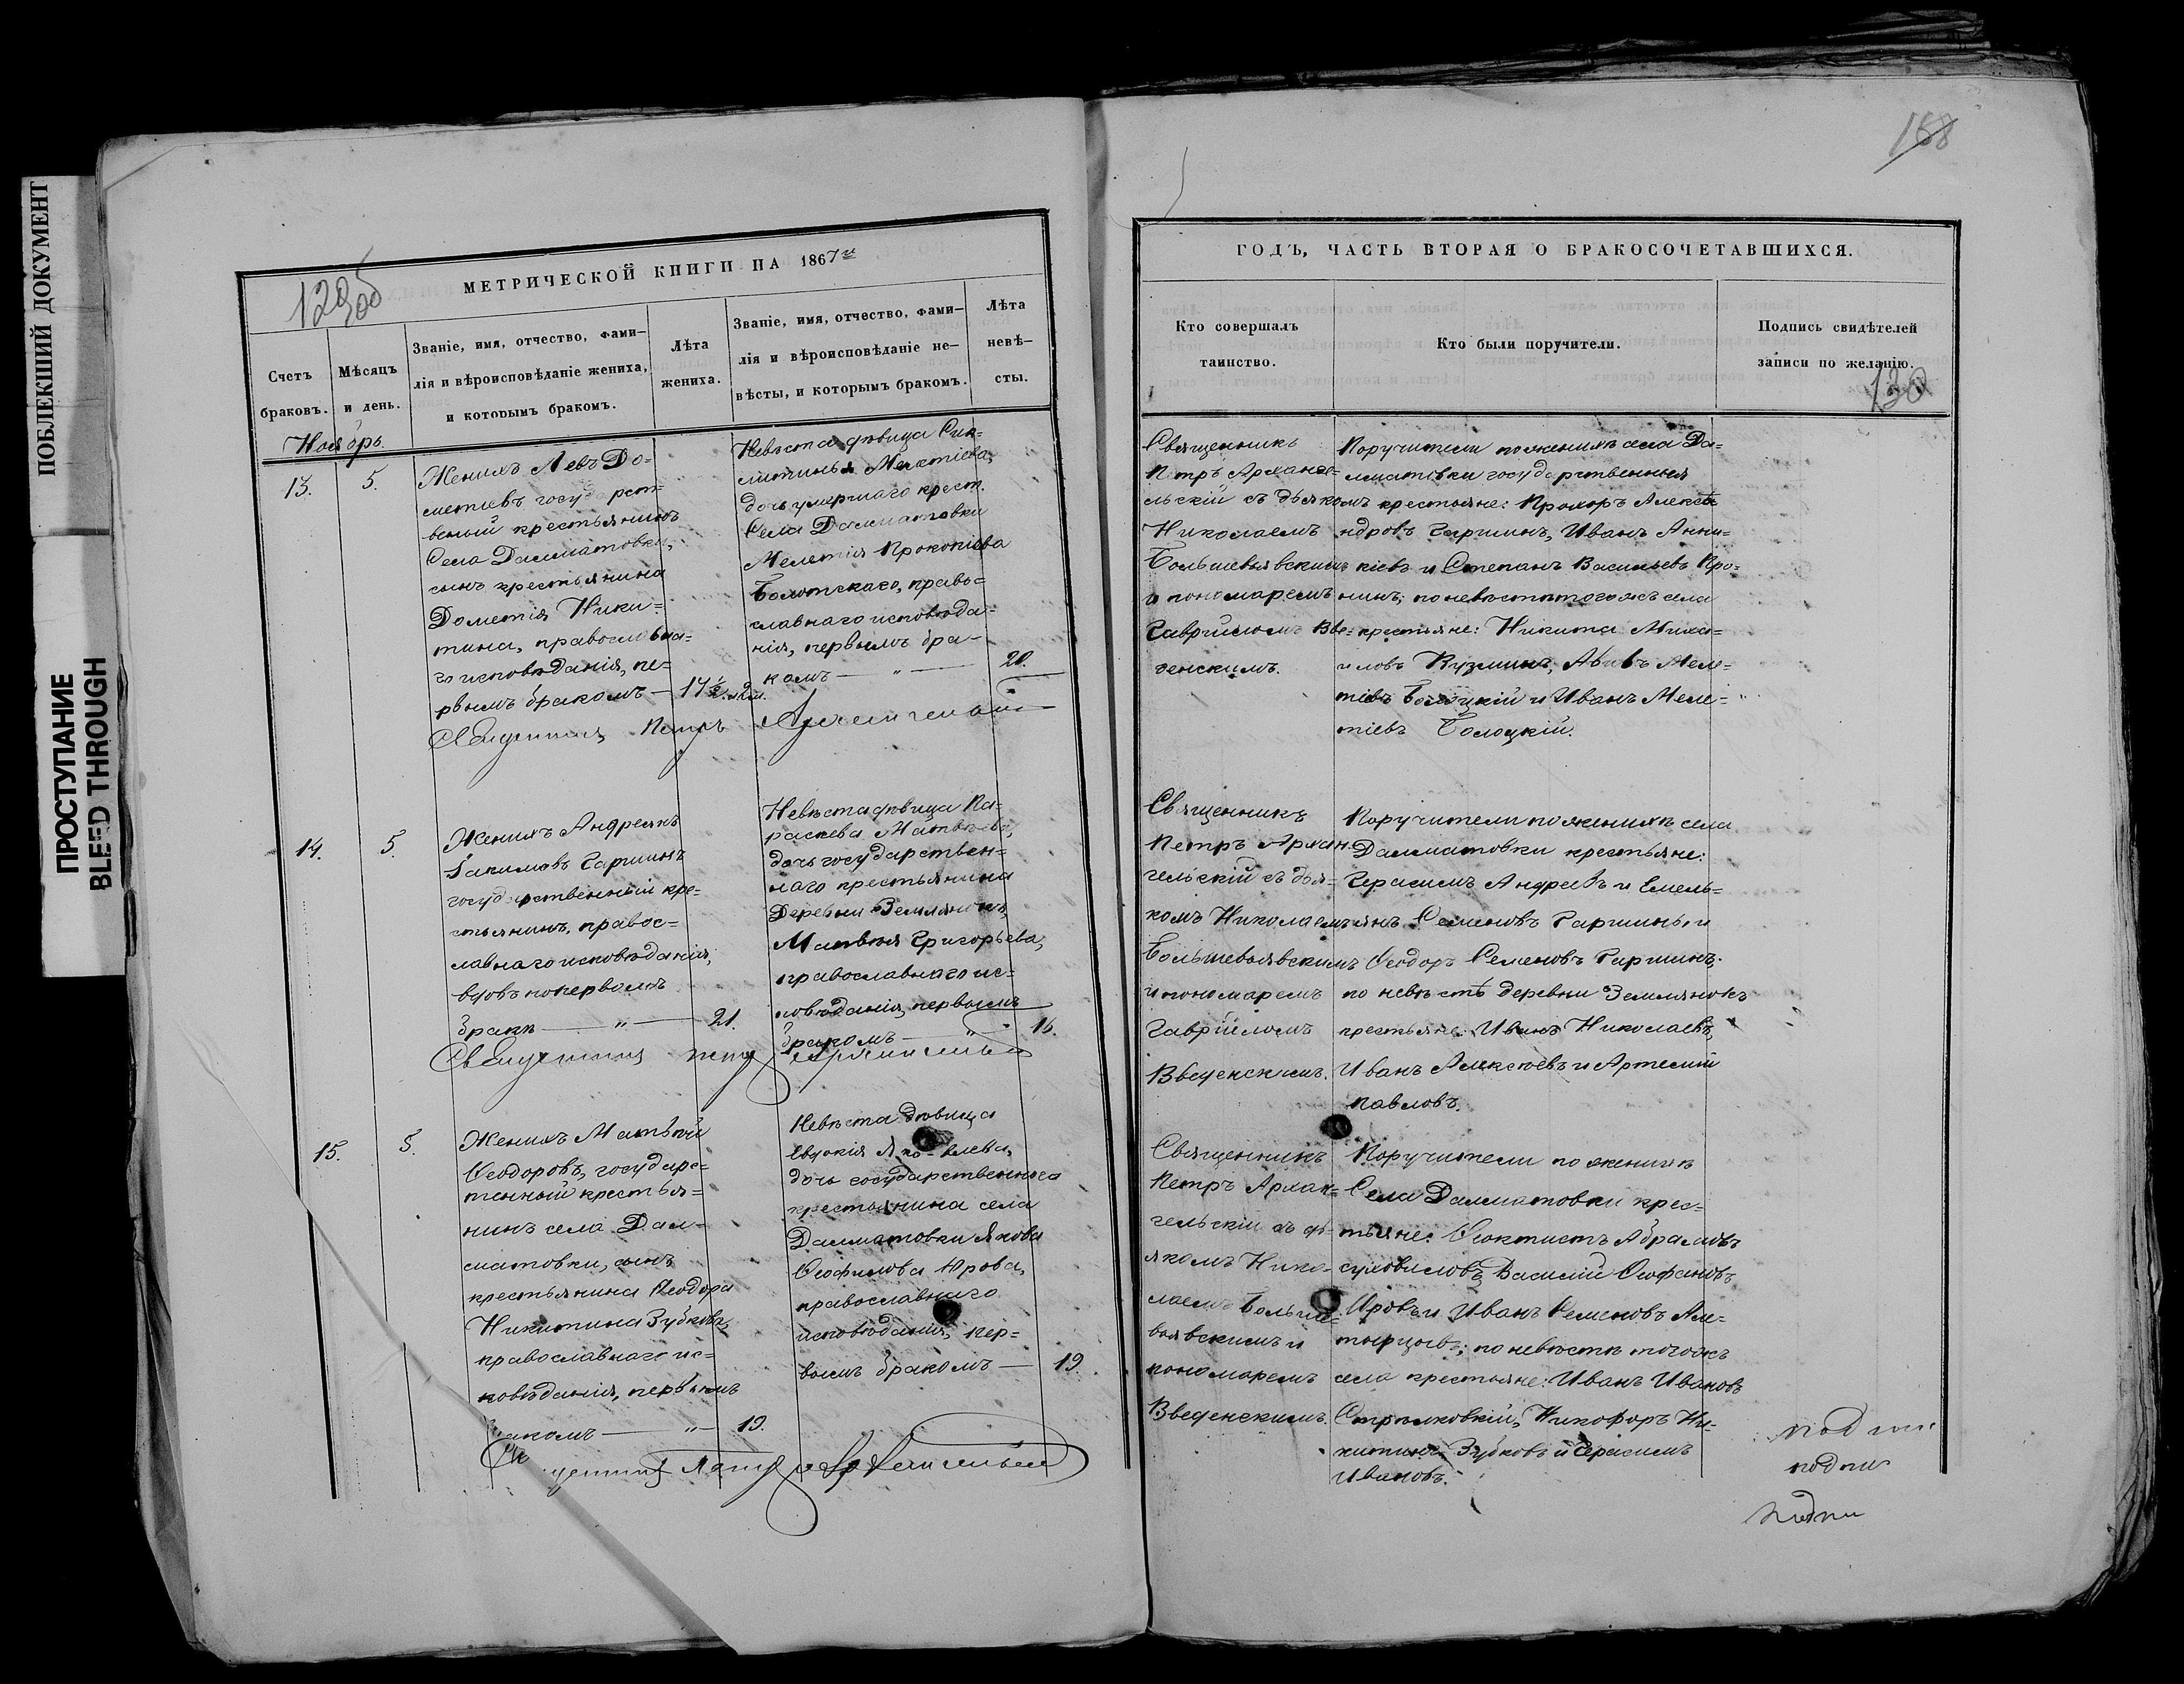 ПОБЛЕКШИЙ ДОКУМЕНТ
ПРОСТУПАНИЕ
BLEED THROUGH
129об
МЕТРИЧЕСКОЙ КНИГИ НА 1867й
Счетъ
браковъ.
Мѣсяцъ
и день.
Званіе, имя, отчество, фами-
лія и вѣроисповѣданіе жениха,
и которымъ бракомъ.
Лѣта
жениха.
Званіе, имя, отчество, фами-
лія и вѣроисповѣданіе не-
вѣсты, и которымъ бракомъ.
Лѣта
невѣ-
сты.
Ноябрь.
13.
5.
Женихъ Левъ До-
метіевъ государст-
венный крестьянинъ
Села Далматовки,
сынъ крестьянина
Дометія Ники-
тина, православна-
го исповѣданія, пе-
рвымъ бракомъ —
Невѣста дѣвица Син-
литинья Мелетіева,
дочь умершаго крест.
Села Далматовки
Мелетія Прокопіева
Болотскаго, право-
славнаго исповѣда-
нія, первымъ бра-
комъ — " —
20.
Священникъ Петръ Архангельскій
14.
5.
Женихъ Андреянъ
Іакимовъ Гаршинъ
государственный кре-
стьянинъ, правос-
лавнаго исповѣданія,
вдовъ по первомъ
бракѣ — " — 21.
Невѣста дѣвица Па-
раскева Матвѣева,
дочь государствен-
наго крестьянина
Деревни Землянокъ
Матвѣя Григорьева,
православнаго ис-
повѣданія, первымъ
бракомъ — " — 16.
Священникъ Петръ Архангельскій
15.
5.
Женихъ Матвѣй
Ѳеодоровъ, государс-
твенный крестья-
нинъ села Дал-
матовки, сынъ
крестьянина Ѳеодора
Никитина Зубкова,
православнаго ис-
повѣданія, первымъ
бракомъ — " — 19.
Невѣста дѣвица
Евдокія Яковлева,
дочь государственнаго
крестьянина села
Далматовки Якова
Ѳеофилова Юрова,
православнаго
исповѣданія, пер-
вымъ бракомъ — 19.
Священникъ Петръ Архангельскій
158
ГОДЪ, ЧАСТЬ ВТОРАЯ О БРАКОСОЧЕТАВШИХСЯ.
Кто совершалъ
таинство.
Кто были поручители.
Подпись свидѣтелей
записи по желанію.
130
Священникъ
Петръ Арханге-
льскій съ дьякомъ
Николаемъ
Большевьявскимъ
и пономаремъ
Гавріиломъ Вве-
денскимъ.
Поручители по женихѣ села Да-
лматовки государственныя
крестьяне: Прохоръ Алекса-
ндровъ Гаршинъ, Иванъ Анни-
кіевъ и Степанъ Васильевъ Про-
нинъ; по невѣстѣ того жъ села
крестьяне: Никита Михаи-
иловъ Кузминъ, Авивъ Меле-
тіевъ Болоцкій и Иванъ Меле-
тіевъ Болоцкій.
Священникъ
Петръ Архан-
гельскій съ дья-
комъ Николаемъ
Большевьявскимъ
и пономаремъ
Гавріиломъ
Введенскимъ.
Поручители по женихѣ села
Далматовки крестьяне:
Герасимъ Андреевъ и Емель-
янъ Семеновъ Гаршины и
Ѳеодоръ Семеновъ Гаршинъ;
по невѣстѣ деревни Землянокъ
крестьяне: Иванъ Николаевъ,
Иванъ Алексѣевъ и Артемій
Павловъ.
Священникъ
ПетръАрхан-
гельскій съ дь-
якомъ Нико-
лаемъ Больше-
вьявскимъ и
пономаремъ
Введенскимъ.
Поручители по женихѣ
Села Далматовки крес-
тьяне: Ѳеоктистъ Абрамовъ
Василій Ѳеофановъ
Юровъ и Иванъ Семеновъ Ал-
тырцовъ; по невѣстѣ того жъ
села крестьяне: Иванъ Ивановъ
Стрѣлковскій, Никифоръ Ни-
китинъ Зубковъ и Герасимъ
Ивановъ.
подпи
подпи
подпи